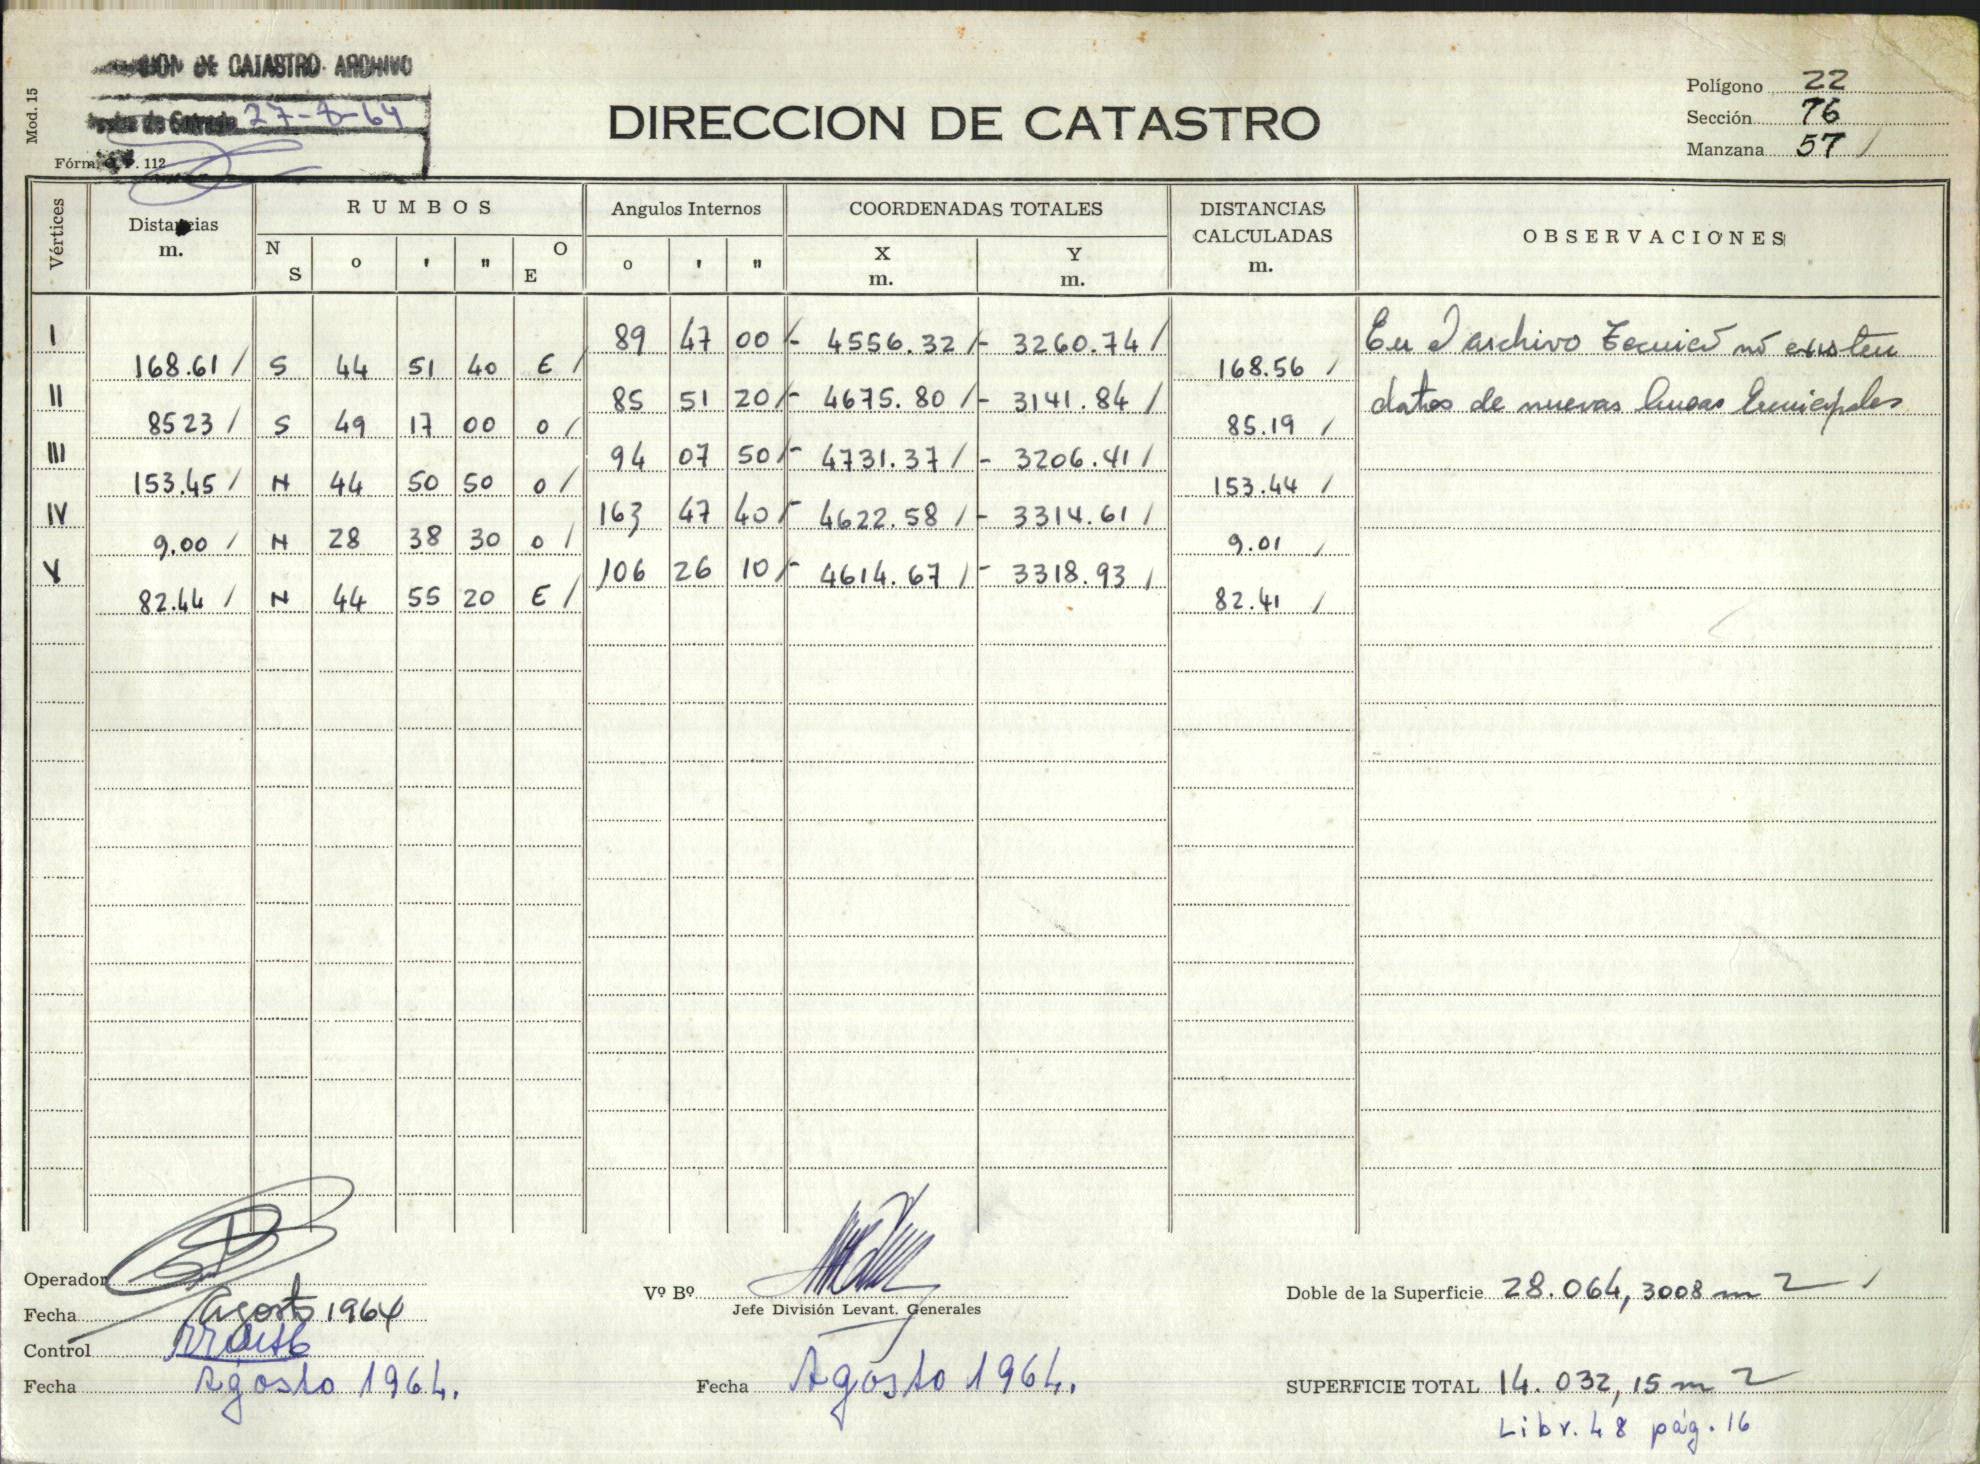 DE CATASTRO. ARCHIVO
27-8-64
Mod. 15
Fórm. 112
DIRECCION DE CATASTRO
Polígono 22
Sección 76
Manzana 57 /
Vértices
Distancias m.
RUMBOS
N S o ' " O E
Angulos Internos
o ' "
COORDENADAS TOTALES
X m. Y m.
DISTANCIAS CALCULADAS m.
OBSERVACIONES
I 89 47 00 /- 4556.32 /- 3260.74 /
168.61 / S 44 51 40 E / 168.56 /
II 85 51 20 /- 4675.80 /- 3141.84 /
85 23 / S 49 17 00 O / 85.19 /
III 94 07 50 /- 4731.37 /- 3206.41 /
153.45 / N 44 50 50 O / 153.44 /
IV 163 47 40 /- 4622.58 /- 3314.61 /
9.00 / N 28 38 30 O / 9.01 /
V 106 26 10 /- 4614.67 /- 3318.93 /
82.44 / N 44 55 20 E / 82.41 /
En el archivo Tecnico no existen
datos de nuevas lineas municipales
Operador
Fecha Agosto 1964
Control
Fecha Agosto 1964.
Vº Bº
Jefe División Levant. Generales
Fecha Agosto 1964.
Doble de la Superficie 28.064,3008 m2 /
SUPERFICIE TOTAL 14.032,15 m2
Libr. 48 pág. 16